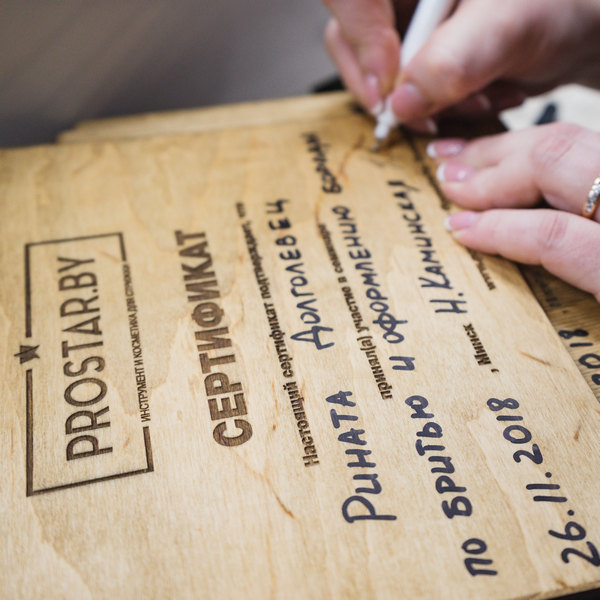 PROSTAR.BY
ИНСТРУМЕНТ И КОСМЕТИКА ДЛЯ СТРИЖКИ
СЕРТИФИКАТ
Настоящий сертификат подтверждает, что
Рината Долголевец
принял(а) участие в семинаре
по бритью и оформлению бороды
26.11.2018, Минск Н.Каминская
2018